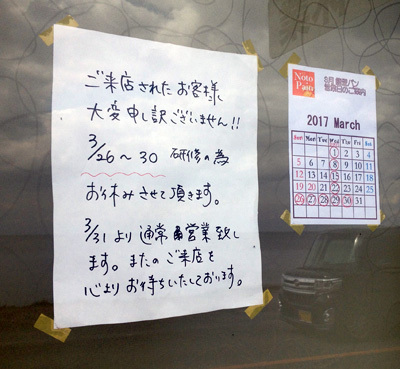 ご来店されたお客様、
大変申し訳ございません!!
3/26〜30 研修の為
お休みさせて頂きます。
3/31より通常営業致し
ます。またのご来店を
心よりお待ちいたしております。
Noto
Pain
3月
営業日のご案内
2017 March
Sun Mon Tue Wed Thu Fri Sat
1 2 3 4
5 6 7 8 9 10 11
12 13 14 15 16 17 18
19 20 21 22 23 24 25
26 27 28 29 30 31